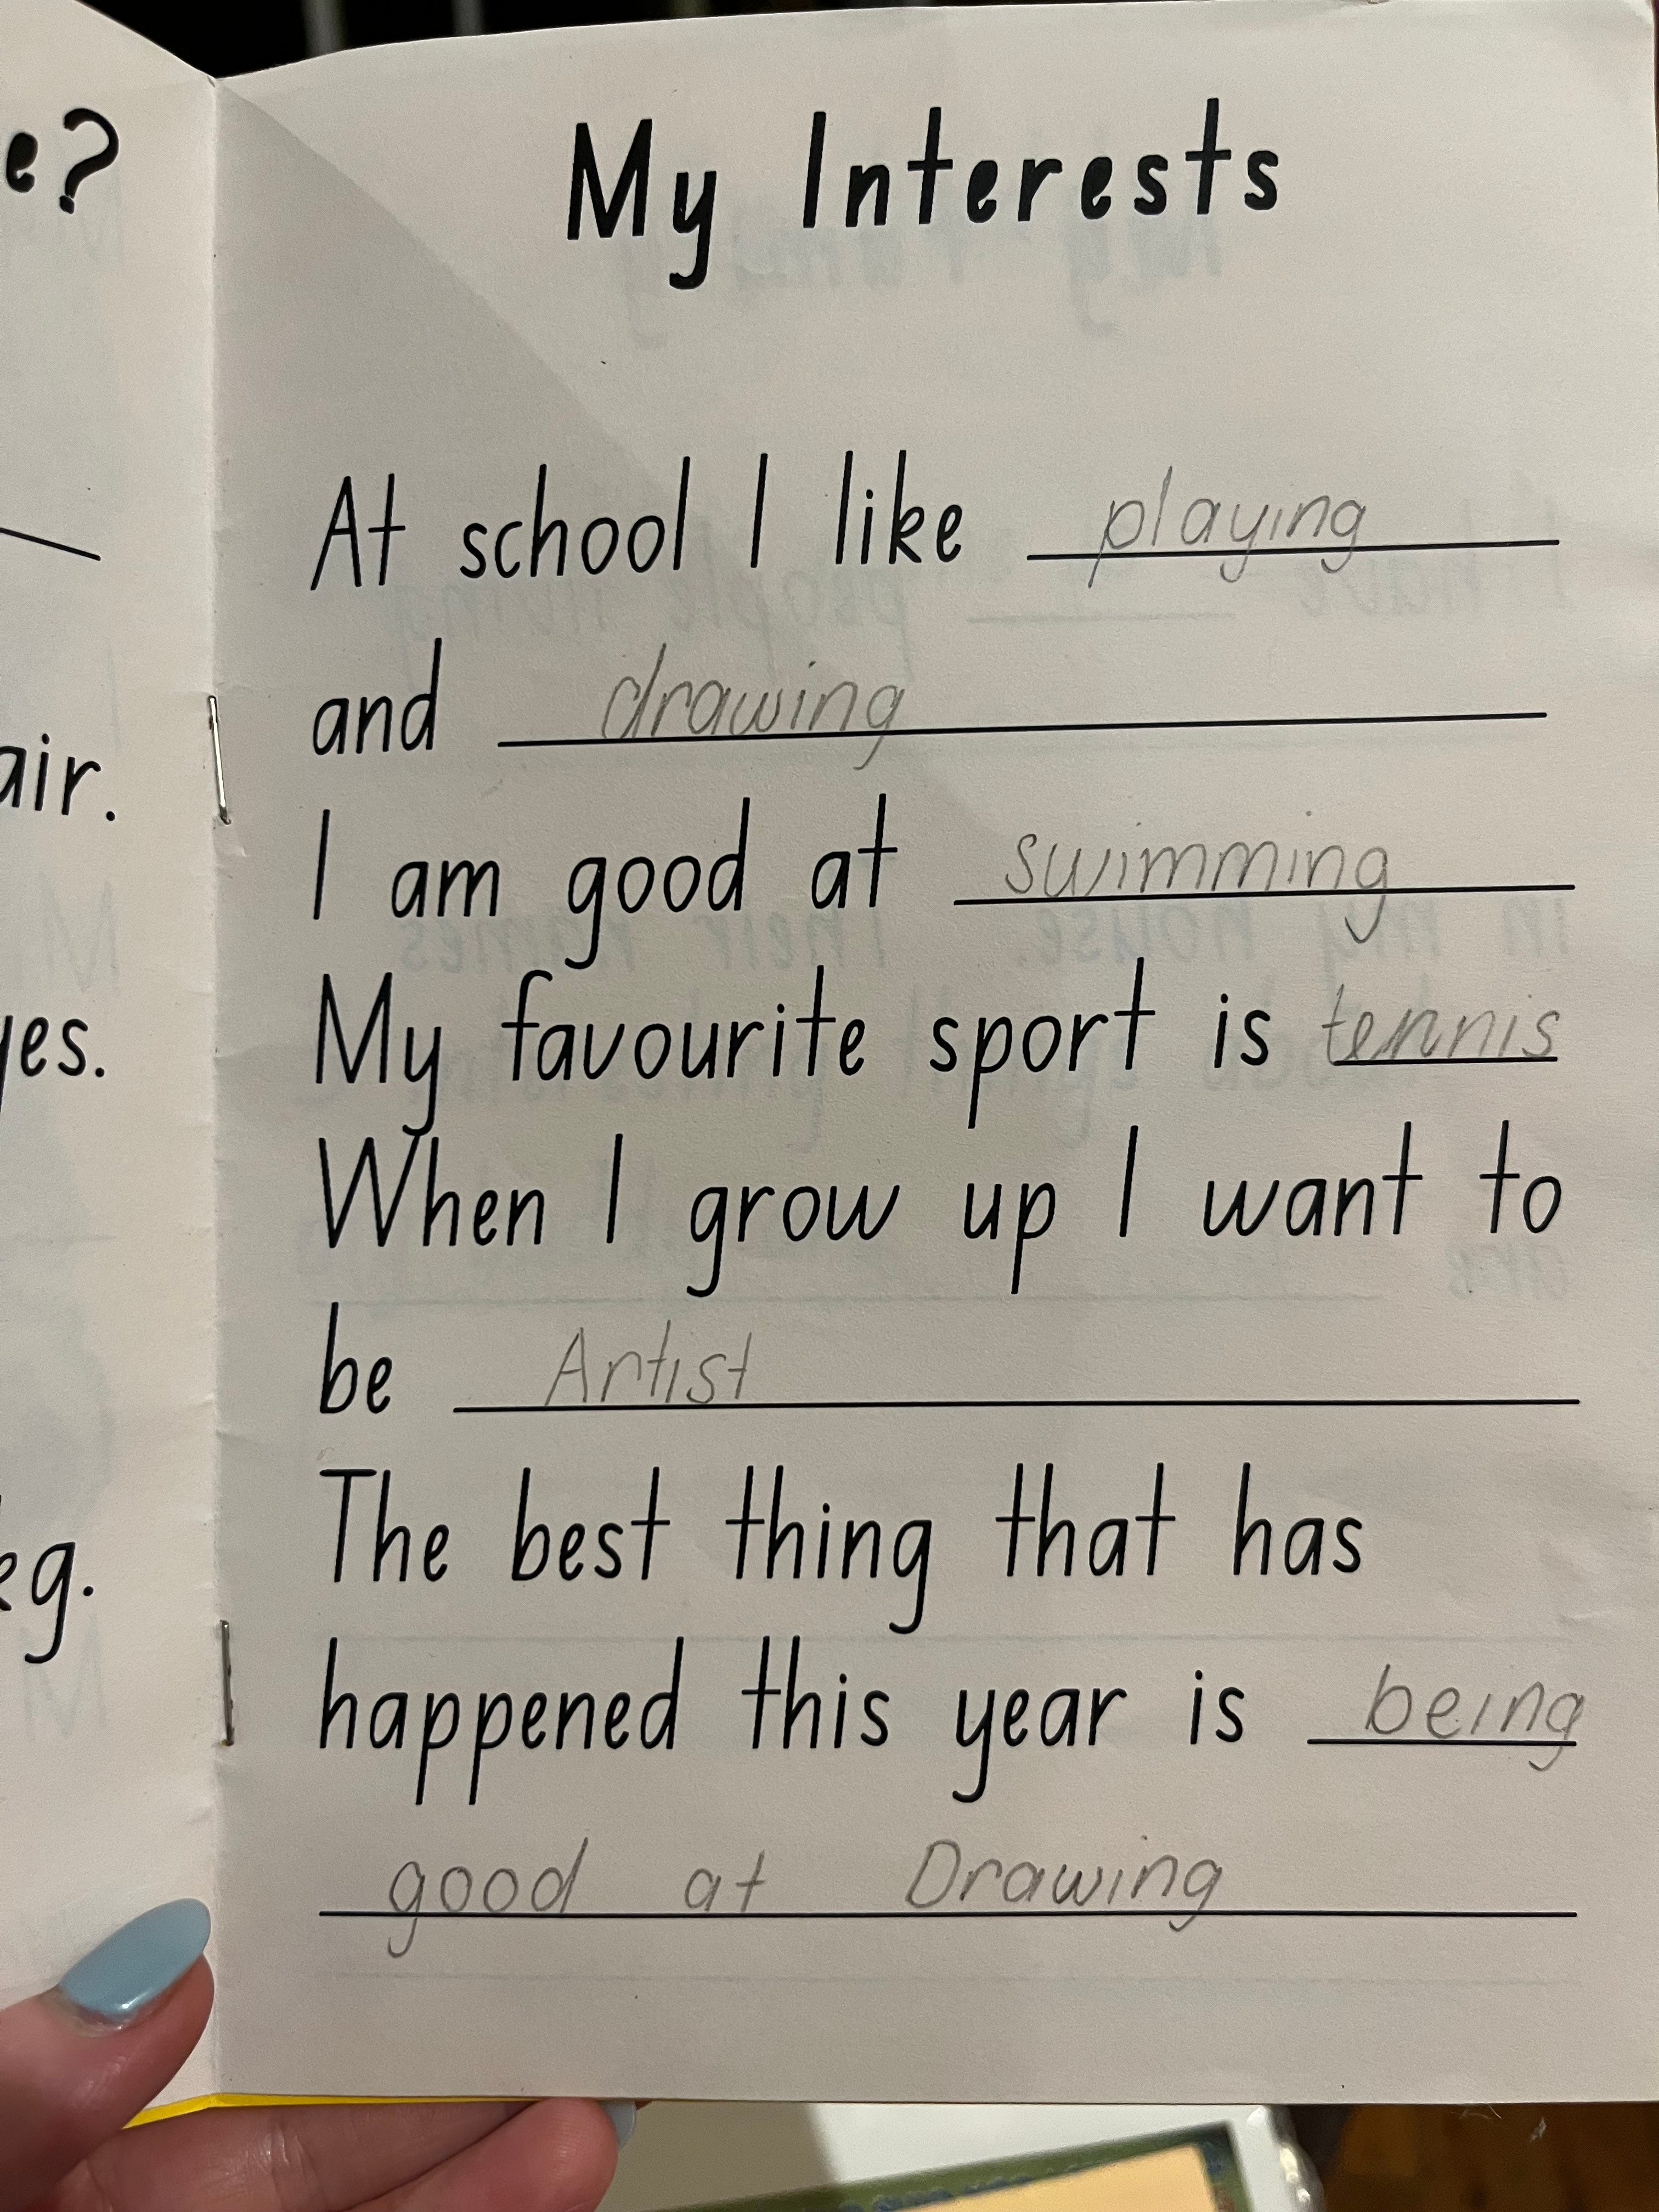 e?
air.
yes.
eg.
My Interests
At school I like playing
and drawing
I am good at swimming
My favourite sport is tennis
When I grow up I want to
be Artist
The best thing that has
happened this year is being
good at Drawing